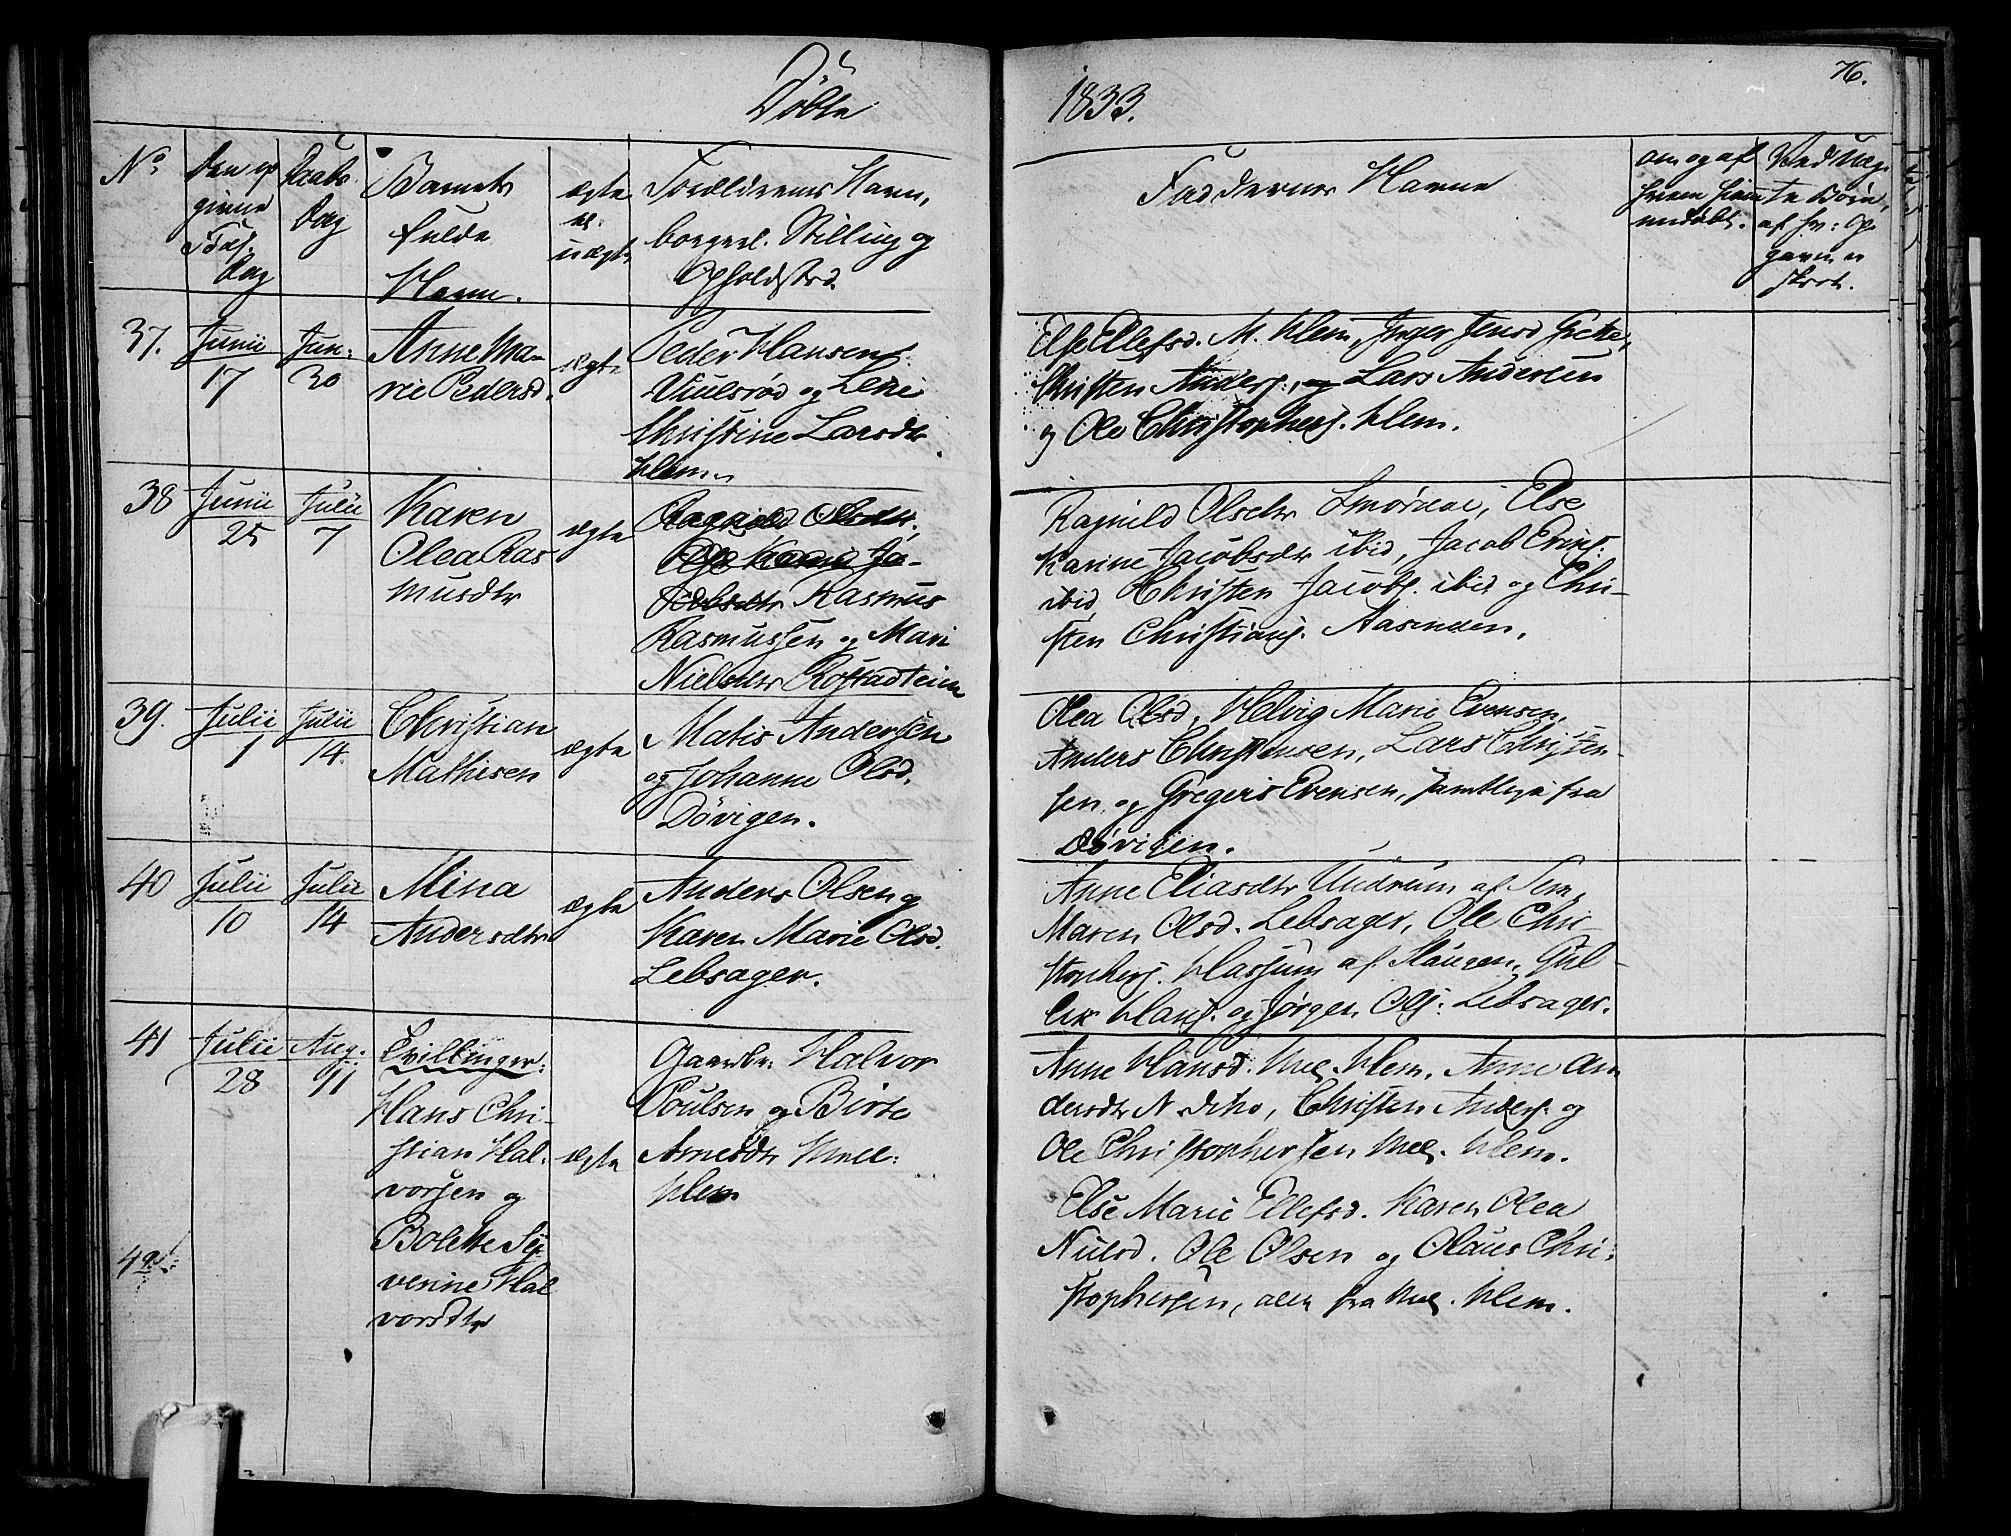 Døbte
1833.
76.
No
Den op
givne
Føds.
Dag
Daabs
Dag
Barnets
fulde
Navn.
ægte
el.
uægte
Forældrenes Navn,
borgerl. Stilling og
Opholdsted.
Faddernes Navne
om og af
hvem hjem
medøbt.
Ved Uæg
te Børn,
af hv: Op
gaven er
skeet.
37.
Junii
17
Jun:
30
Anne Ma-
rie Pedersd.
ægte
Peder Hansen
og Lene
Christine Larsdtr
Hem.
Else Ellefsd. M. Hem, Inger Jensd
Christen Anders:, og Lars Andersen
og Ole Christophers. Hem.
38
Junii
25
Julii
7
Karen
Olea Ras
musdtr
ægte
Ragnild Olsdtr.
Else Karine Ja-
cobsdtr Rasmus
Rasmussen og Mari
Nielsdtr Rostadteien
Ragnild Olsdtr Smørne, Else
Karine Jacobsdtr ibid, Jacob Erics:
ibid, Christen Jacobs. ibid og Chri-
sten Christians. Aasenden.
39.
Julii
1
Julii
14.
Christian
Mathisen
ægte
Matis Andersen
og Johanne Olsd.
Døvigen.
Olea Olsd, Helvig Marie Evensen,
Anders Christensen, Lars Christen-
sen og Gregers Evensen, samtlige fra
Døvigen.
40
Julii
10
Julii
14
Mina
Andersdtr
ægte
Anders Olsen og
Karen Marie Olsd.
Lebsager.
Anne Eliasdtr Undrum af Sem,
Maren Olsd. Lebsager, Ole Chri-
stophers. Hassum af Slaugen, Gul-
lik Hans. og Jørgen Ols: Lebsager.
41
Julii
28
Aug.
11
Tvillinger:
Hans Chri-
stian Hal-
vorsen og
ægte
Gaardbr: Halvor
Poulsen og Birte
Arnesdtr Mell:
Hem
Anne Hansd. Mel. Hem, Anne An
dersdtr N. dito, Christen Anders. og
Ole Christophersen Mel. Hem.
42
Bolette Se
verine Hal
vorsdtr
Else Marie Ellefsd. Karen Olea
Nielsd. Ole Olsen og Olaus Chri-
stophersen, alle fra Mel. Hem.